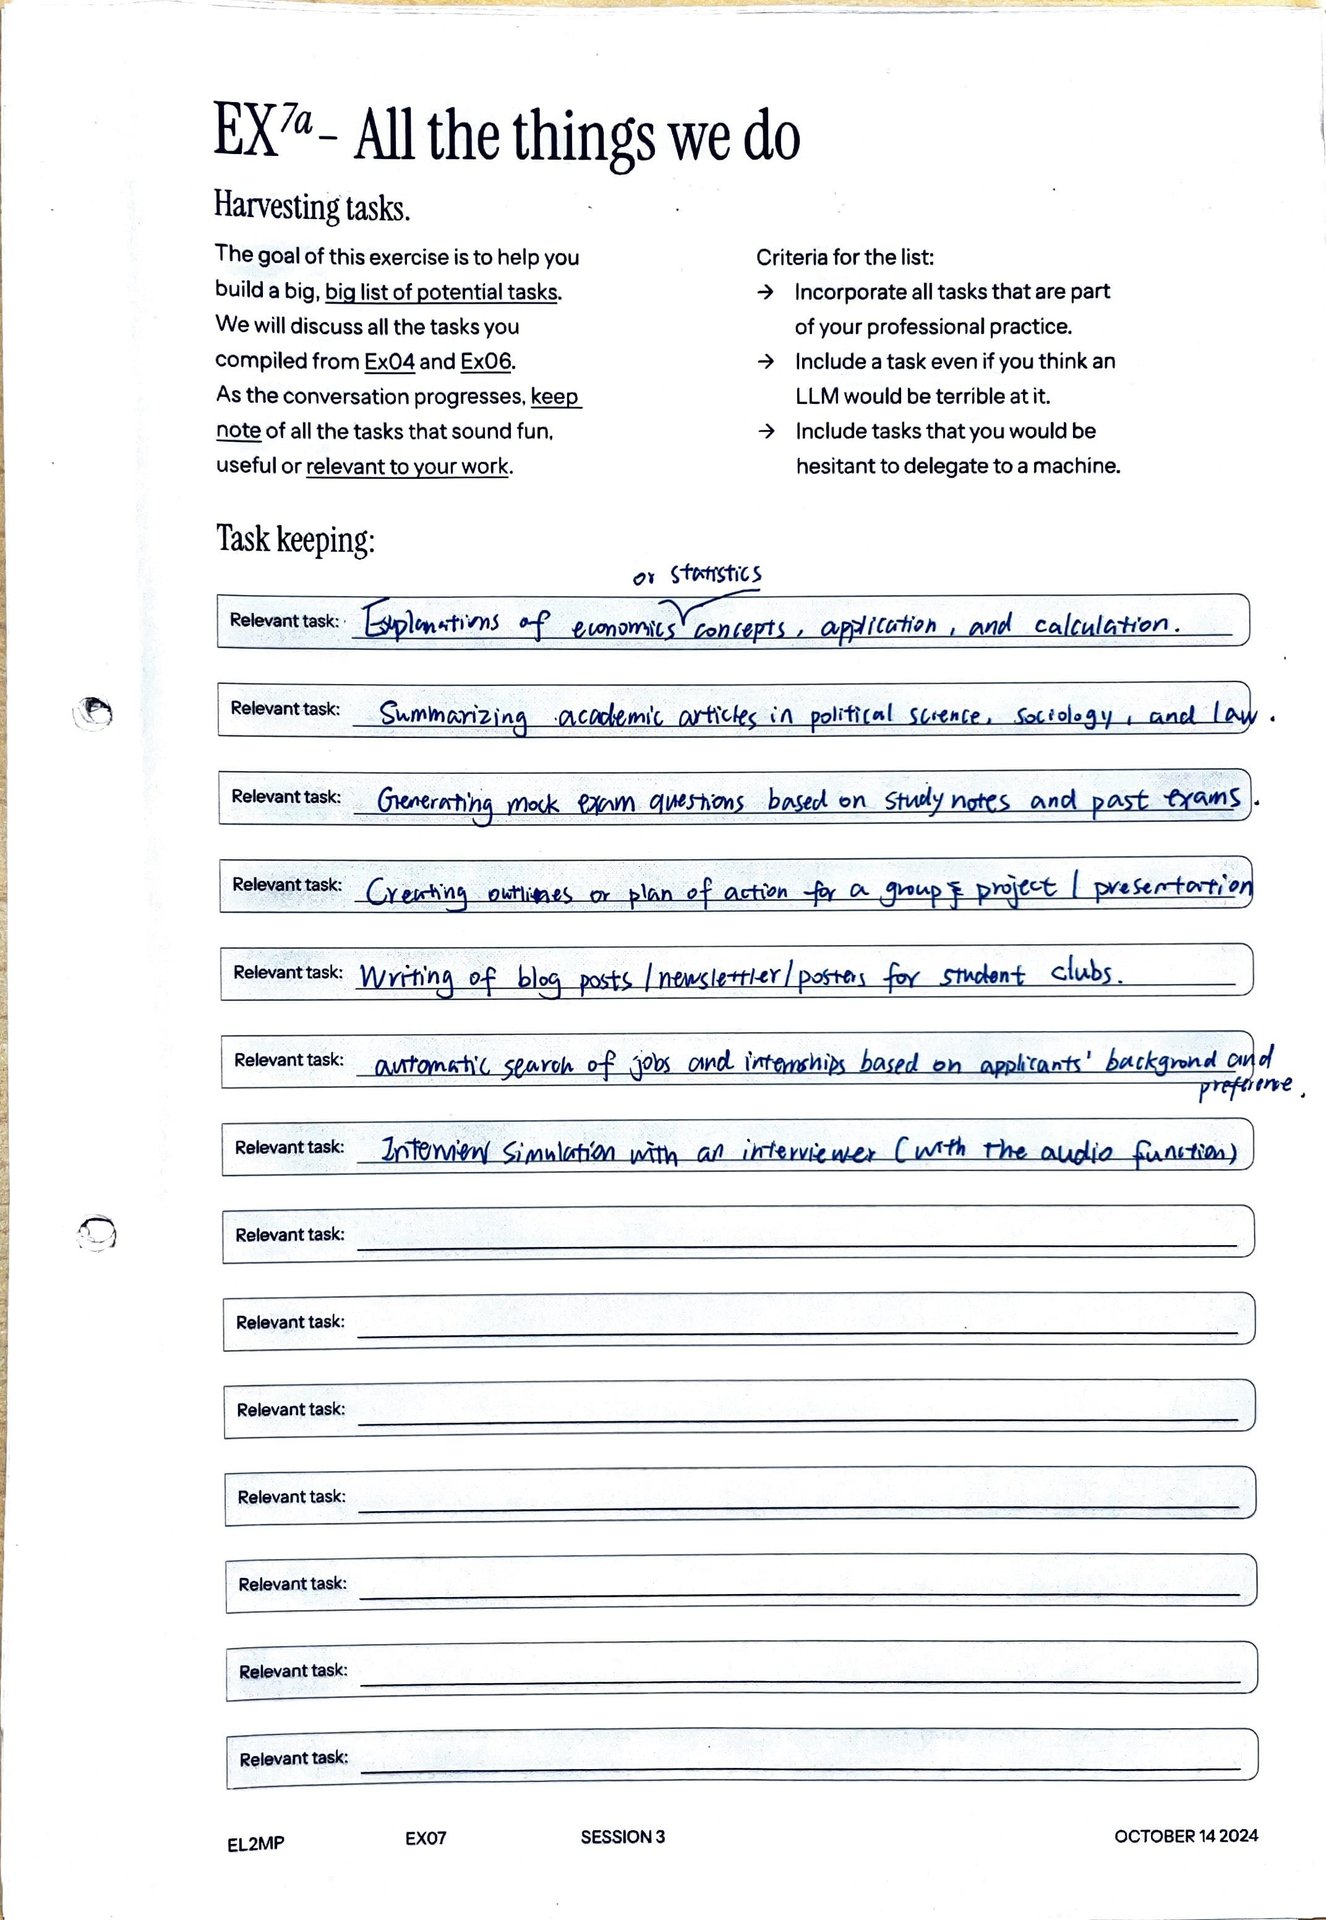 EX7a – All the things we do
Harvesting tasks.
The goal of this exercise is to help you
build a big, big list of potential tasks.
We will discuss all the tasks you
compiled from Ex04 and Ex06.
As the conversation progresses, keep
note of all the tasks that sound fun,
useful or relevant to your work.
Criteria for the list:
→ Incorporate all tasks that are part
of your professional practice.
→ Include a task even if you think an
LLM would be terrible at it.
→ Include tasks that you would be
hesitant to delegate to a machine.
Task keeping:
or statistics
Relevant task: Explanations of economics concepts, application, and calculation.
Relevant task: Summarizing academic articles in political science, sociology, and law.
Relevant task: Generating mock exam questions based on study notes and past exams.
Relevant task: Creating outlines or plan of action for a group project / presentation
Relevant task: Writing of blog posts / newslettler / posters for student clubs.
Relevant task: automatic search of jobs and internships based on applicants' backgrond and
preference.
Relevant task: Interview simulation with an interviewer (with the audio function)
Relevant task:
Relevant task:
Relevant task:
Relevant task:
Relevant task:
Relevant task:
Relevant task:
EL2MP EX07 SESSION 3 OCTOBER 14 2024